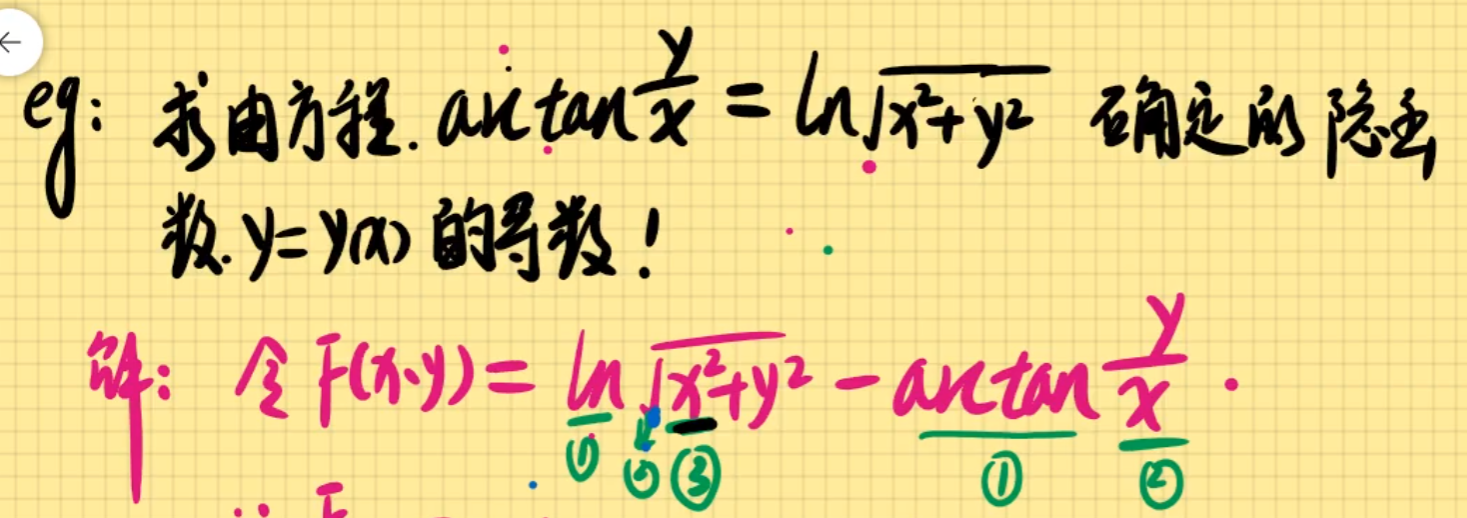 eg: 求由方程. arctan y/x = ln√(x²+y²) 确定的隐函
数. y=y(x) 的导数!
解: 令 F(x,y) = ln√(x²+y²) - arctan y/x .
① ② ③ ① ②
∵ F